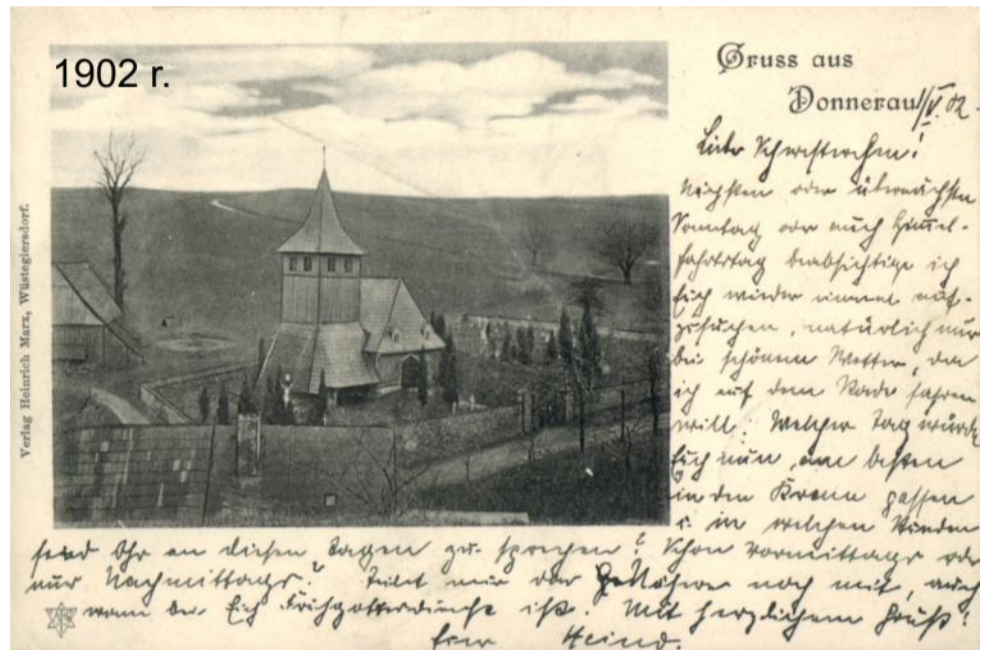 1902 r.
Gruss aus
Donnerau
1/V. 02.
Liebe Schwesterchen!
Nächsten oder übernächsten
Sonntag oder auch Himmel-
fahrtstag beabsichtige ich
Euch wieder einmal auf-
zusuchen, natürlich nur
bei schönem Wetter, da
ich auf dem Rade fahren
will. Welcher Tag würde
Euch nun am besten
in den Kram passen
u. in welchen Stunden
seid Ihr an diesen Tagen zu sprechen? Schon vormittags oder
nur Nachmittags? Teilet mir das Nähere noch mit, auch
wann bei Euch Frühgottesdienst ist. Mit herzlichem Gruß!
Euer
Verlag Heinrich Marx, Wüstegiersdorf.